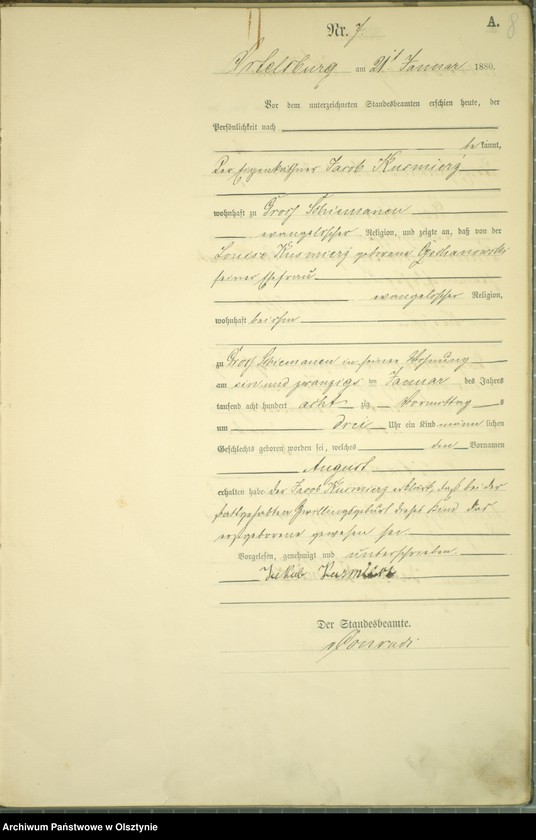 A.
8
Nr. 7.
Ortelsburg am 21t Januar 1880.
Vor dem unterzeichneten Standesbeamten erschien heute, der
Persönlichkeit nach
bekannt,
Der Eigenkäthner Jacob Kusmierz
wohnhaft zu Groß Schiemanen
evangelischer Religion, und zeigte an, daß von der
Louise Kusmierz geborene
seiner Ehefrau
evangelischer Religion,
wohnhaft bei ihm
zu Groß Schiemanen in seiner Wohnung
am ein und zwanzigs ten Januar des Jahres
tausend acht hundert acht zig Vormittag s
um drei Uhr ein Kind männ lichen
Geschlechts geboren worden sei, welches den Vornamen
August
erhalten habe der Jacob Kusmierz erklärt, daß bei der
stattgehabten Zwillingsgeburt dieses Kind das
erstgeborene gewesen sei.
Vorgelesen, genehmigt und unterschrieben
Jakub
Der Standesbeamte.
Conradi
Archiwum Państwowe w Olsztynie